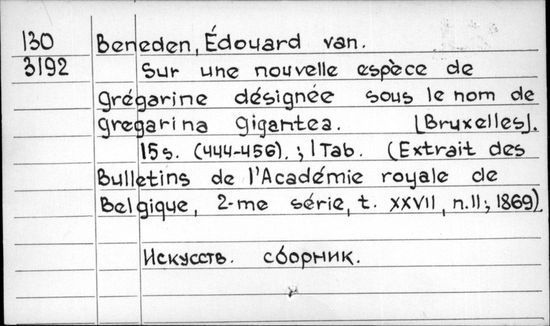 130 Beneden, Édouard van.
3192 Sur une nouvelle espèce de
grégarine désignée sous le nom de
gregarina gigantea. [Bruxelles].
15 s. (444-456).; 1 Tab. (Extrait des
Bulletins de l'Académie royale de
Belgique, 2-me série, t. XXVII, n.11; 1869).
Искусств. сборник.